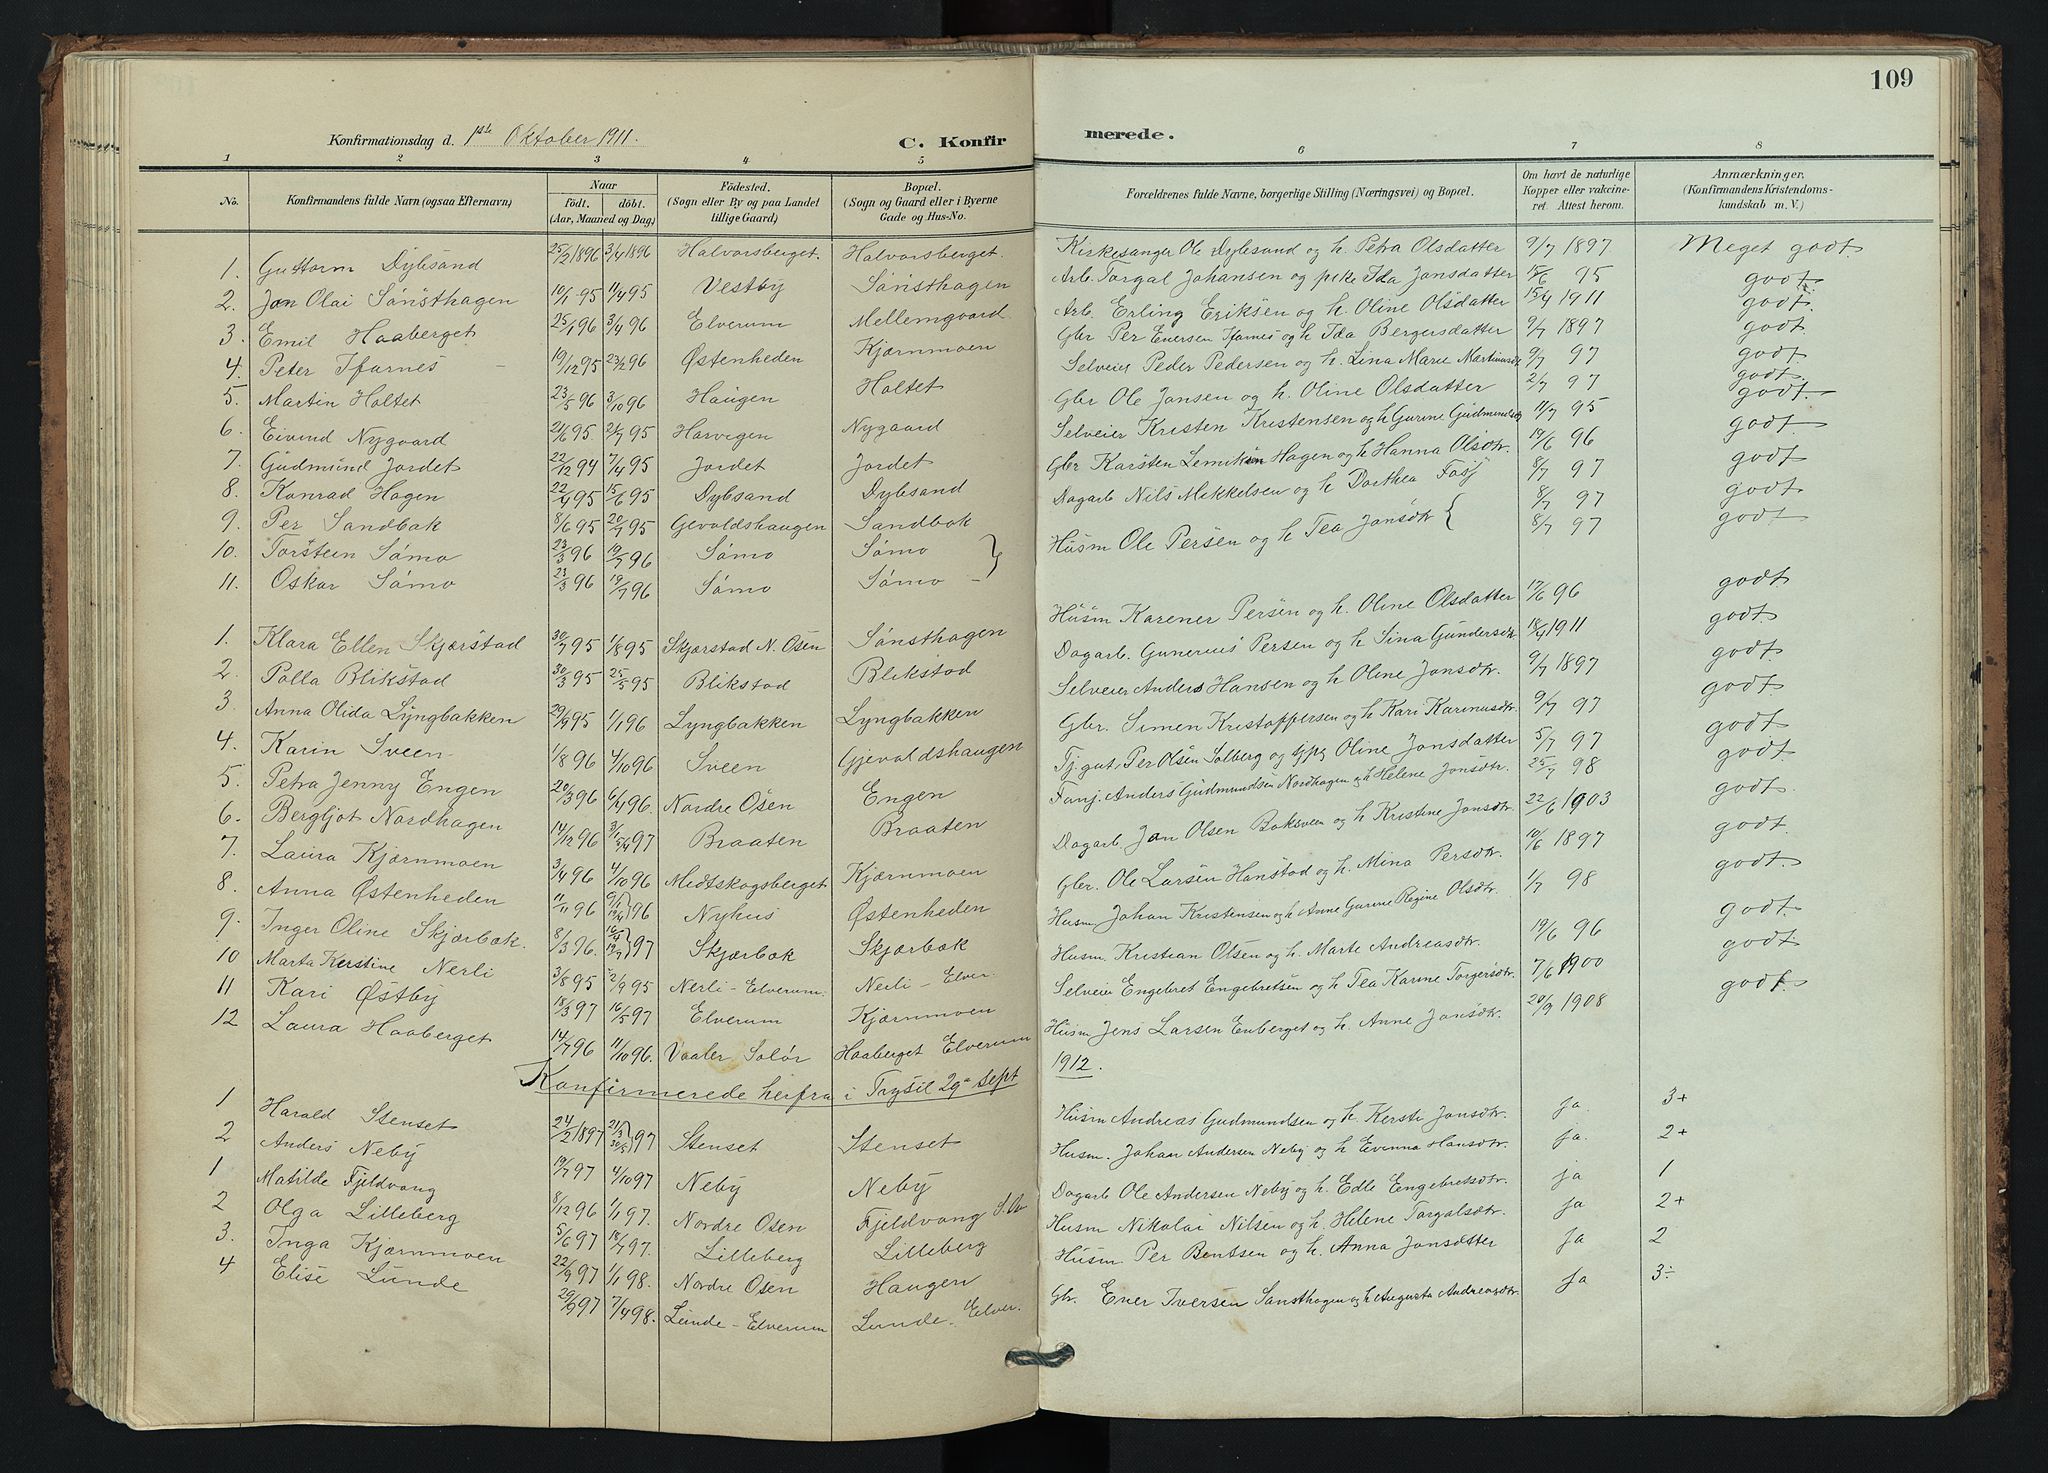 109
Konfirmationsdag d. 1ste Oktober 1911.
C. Konfirmerede.
1 2 3 4 5 6 7 8
No.
Konfirmandens fulde Navn (ogsaa Efternavn)
Naar
Födt. döbt.
(Aar, Maaned og Dag)
Födested.
(Sogn eller By og paa Landet
tillige Gaard)
Bopæl.
(Sogn og Gaard eller i Byerne
Gade og Hus-No.
Forældrenes fulde Navne, borgerlige Stilling (Næringsvei) og Bopæl.
Om havt de naturlige
Kopper eller vakcine-
ret. Attest herom.
Anmærkninger.
(Konfirmandens Kristendoms-
kundskab m. V.)
1. Guttorm Dybsand 25/2 1896 3/4 1896 Halvorsberget. Halvorsberget. Kirkesanger Ole Dybsand og h. Petra Olsdatter 9/7 1897 Meget godt
2. Jon Olai Sønsthagen 10/1 95 11/4 95 Vestby Sønsthagen Arb. Torgal Johansen og pike Ida Jonsdatter 18/6 95 godt
3. Emil Haaberget 25/1 96 3/4 96 Elverum Mellemgaard Arb. Erling Eriksen og h. Oline Olsdatter 15/4 1911 godt
4. Peter Ifarnes 19/12 95 23/2 96 Østenheden Kjærnmoen Gbr Per Enersen Ifarnes og h Ida Bergersdatter 9/7 1897 godt
5. Martin Holtet 23/5 96 3/10 96 Haugen Holtet Selveier Peder Pedersen og h. Lina Marie Martinusdt 9/7 97 godt
6. Eivind Nygaard 21/6 95 2/7 95 Harvigen Nygaard Gbr Ole Jonsen og h. Oline Olsdatter 2/7 97 godt
7. Gudmund Jordet 22/12 94 7/4 95 Jordet Jordet Selveier Kristen Kristensen og h Gurine Gudmundsdt 11/7 95 godt
8. Konrad Hagen 22/4 95 15/6 95 Dybsand Dybsand Gbr Karsten Hagen og h Hanna Olsdtr. 19/6 96 godt
9. Per Sandbak 8/6 95 20/7 95 Gevoldshaugen Sandbak Dagarb Nils Mikkelsen og h Dorthea 8/7 97 godt
10. Torstein Sømo 23/3 96 19/7 96 Sømo Sømo Husm Ole Persen og h Tea Jonsdtr 8/7 97 godt
11. Oskar Sømo 23/3 96 19/7 96 Sømo Sømo 8/7 97 godt
1. Klara Ellen Skjærstad 30/7 95 1/8 95 Skjærstad N. Osen Sønsthagen Husm Karener Persen og h. Oline Olsdatter 17/6 96 godt
2. Palla Blikstad 30/3 95 25/5 95 Blikstad Blikstad Dagarb. Gunerius Persen og h Sina Gundersdt 18/4 1911 godt
3. Anna Olida Lyngbakken 29/9 95 1/1 96 Lyngbakken Lyngbakken Selveier Anders Hansen og h Oline Jonsdtr. 9/7 1897 godt
4. Karin Sveen 1/8 96 4/10 96 Sveen Gjevoldshaugen Gbr. Simen Kristoppersen og h Kari Karinusdtr. 9/7 97 godt
5. Petra Jenny Engen 20/3 96 6/4 96 Nordre Osen Engen Tj.gut. Per Olsen Solberg og tjpg Oline Jonsdatter 5/7 97 godt
6. Bergljot Nordhagen 14/12 96 97 Braaten Braaten Fanj. Anders Gudmundsen Nordhagen og h Helene Jonsdtr. 25/7 98 godt
7. Laura Kjærnmoen 3/4 96 4/10 96 Midtskogsberget Kjærnmoen Dagarb. Jon Olsen Baksveen og h Kristine Jonsdtr. 22/6 1903 godt
8. Anna Østenheden 11/11 96 96 Nyhus Østenheden Gbr. Ole Larsen Hanstad og h. Mina Persdtr. 10/6 1897 godt
9. Inger Oline Skjærbæk. 8/3 96. 97 Skjærbæk Skjærbæk Husm Johan Kristensen og h Anne Gurine Regine Olsdtr. 1/7 98 godt
10 Marta Kerstine Nerli 3/8 95 2/9 95 Nerli - Elverum. Nerli - Elver. Husm. Kristian Olsen og h. Marte Andreasdtr. 19/6 96 godt
11 Kari Østby 18/3 97 16/5 97 Elverum Kjærnmoen Selveier Engebret Engebretsen og h Tea Karine Torgersdtr. 7/6 1900 godt
12 Laura Haaberget 14/7 96 11/10 96. Vaaler Solør Haaberget Elverum Husm Jens Larsen Enberget og h. Anne Jonsdtr. 20/9 1908 godt
Konfirmerede herfra i Trysil 29de Sept 1912.
1 Harald Stenset 24/2 1897 97 Stenset Stenset Husm Andreas Gudmundsen og h. Kersti Jonsdtr. ja 3+
2 Anders Neby 19/7 97 4/10 97 Neby Neby Husm. Johan Andersen Neby og h Evenna Hansdtr. ja. 2+
1 Matilde Fjeldvang 8/12 96 1/1 97. Nordre Osen Fjeldvang Dagarb Ole Andersen Neby og h. Edle Engebretsdtr. ja 1
2 Olga Lilleberg 5/6 97 18/7 97. Lilleberg Lilleberg Husm Nikolai Nilsen og h. Helene Torgalsdtr. ja 2+
3. Inga Kjærnmoen 22/9 97 1/1 98. Nordre Osen Haugen Husm Per Bentsen og h. Anna Jonsdtter ja 2
4 Elise Lunde 29/9 97 7/4 98. Lunde - Elverum Lunde - Elver. Gbr. Ener Iversen Sønsthagen og h Augusta Andreasdtr. ja 3÷